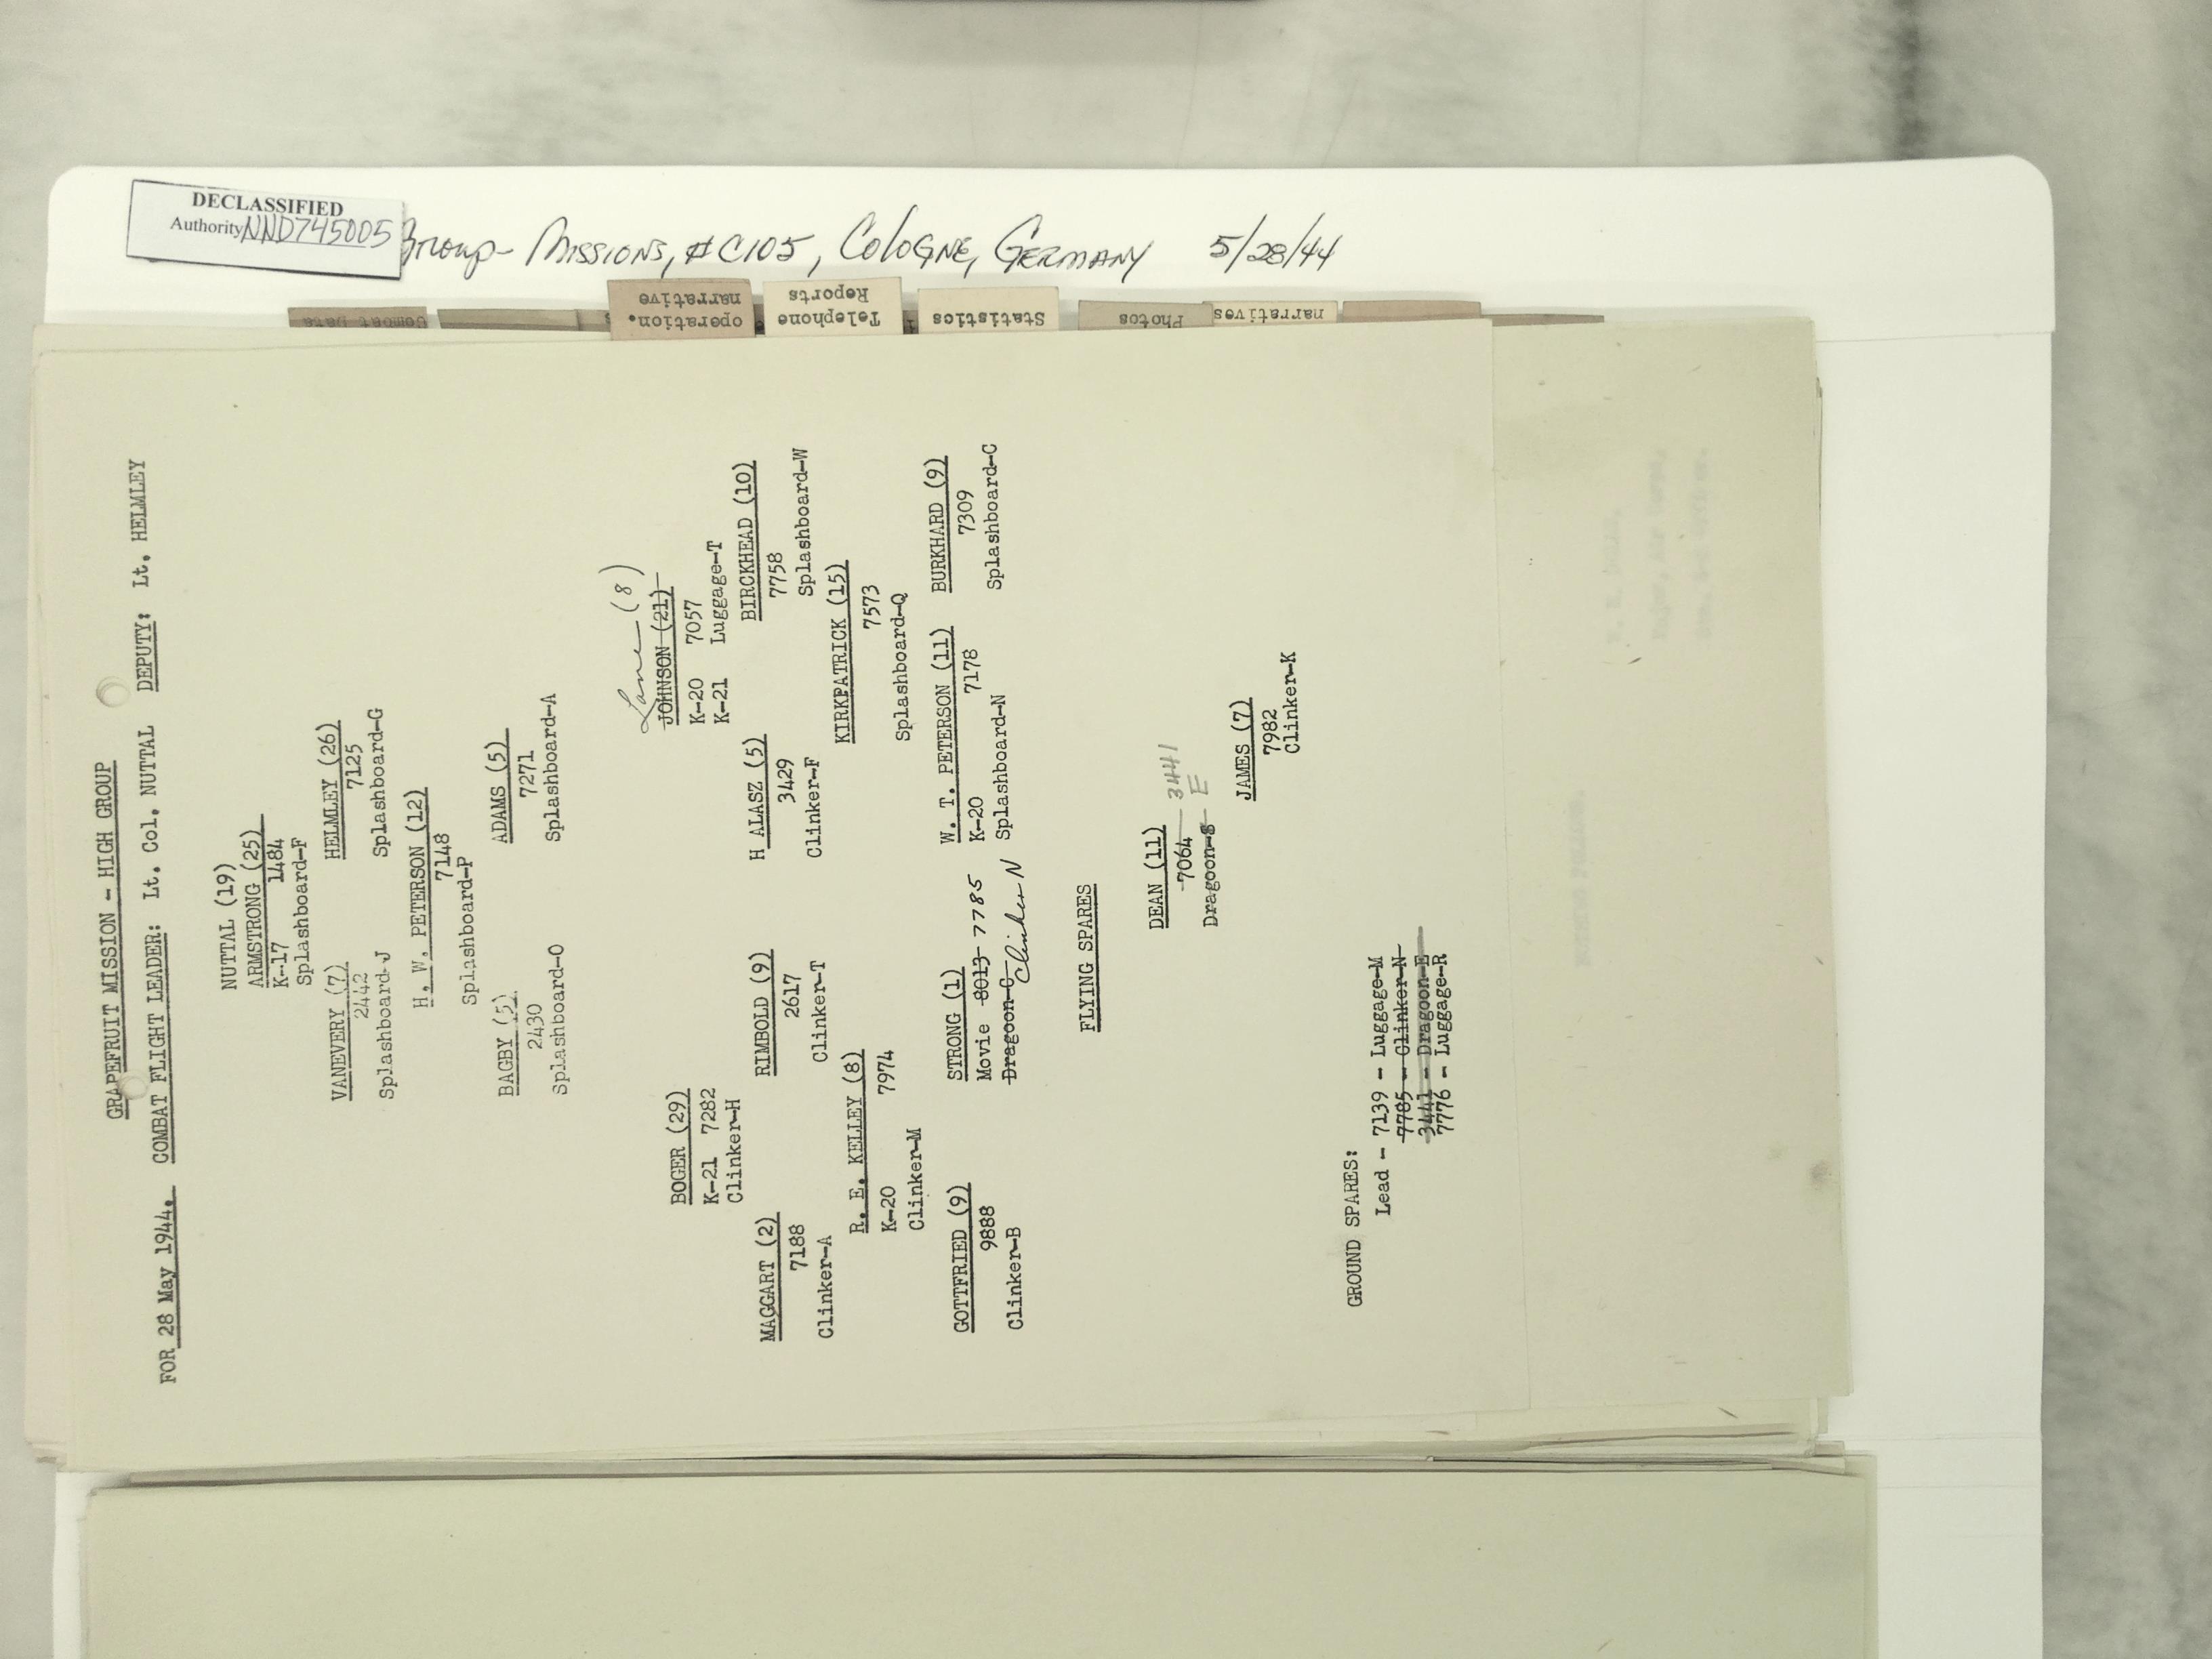 DECLASSIFIED
Authority NND745005
Group - Missions, #C105, Cologne, Germany 5/28/44
Combat Data
operation.
narrative
Telephone
Reports
Statistics
Photos
narratives
GRAPEFRUIT MISSION - HIGH GROUP
FOR 28 May 1944. COMBAT FLIGHT LEADER: Lt. Col. NUTTAL DEPUTY: Lt. HELMLEY
NUTTAL (19)
ARMSTRONG (25)
K-17 1484
Splashboard-F
VANEVERY (7) HELMLEY (26)
2442 7125
Splashboard-J Splashboard-G
H. W. PETERSON (12)
7148
Splashboard-P
BAGBY (5) ADAMS (5)
2430 7271
Splashboard-O Splashboard-A
Lane (8)
BOGER (29) JOHNSON (21)
K-21 7282 K-20 7057
Clinker-H K-21 Luggage-T
MAGGART (2) RIMBOLD (9) H ALASZ (5) BIRCKHEAD (10)
7188 2617 3429 7758
Clinker-A Clinker-T Clinker-F Splashboard-W
R. E. KELLEY (8) KIRKPATRICK (15)
K-20 7974 7573
Clinker-M Splashboard-Q
GOTTFRIED (9) STRONG (1) W. T. PETERSON (11) BURKHARD (9)
9888 Movie 8013 7785 K-20 7178 7309
Clinker-B Dragoon-C Clinker N Splashboard-N Splashboard-C
FLYING SPARES
DEAN (11)
7064 3441
Dragoon-S E
JAMES (7)
7982
Clinker-K
GROUND SPARES:
Lead - 7139 - Luggage-M
7785 - Clinker-N
3441 - Dragoon-E
7776 - Luggage-R